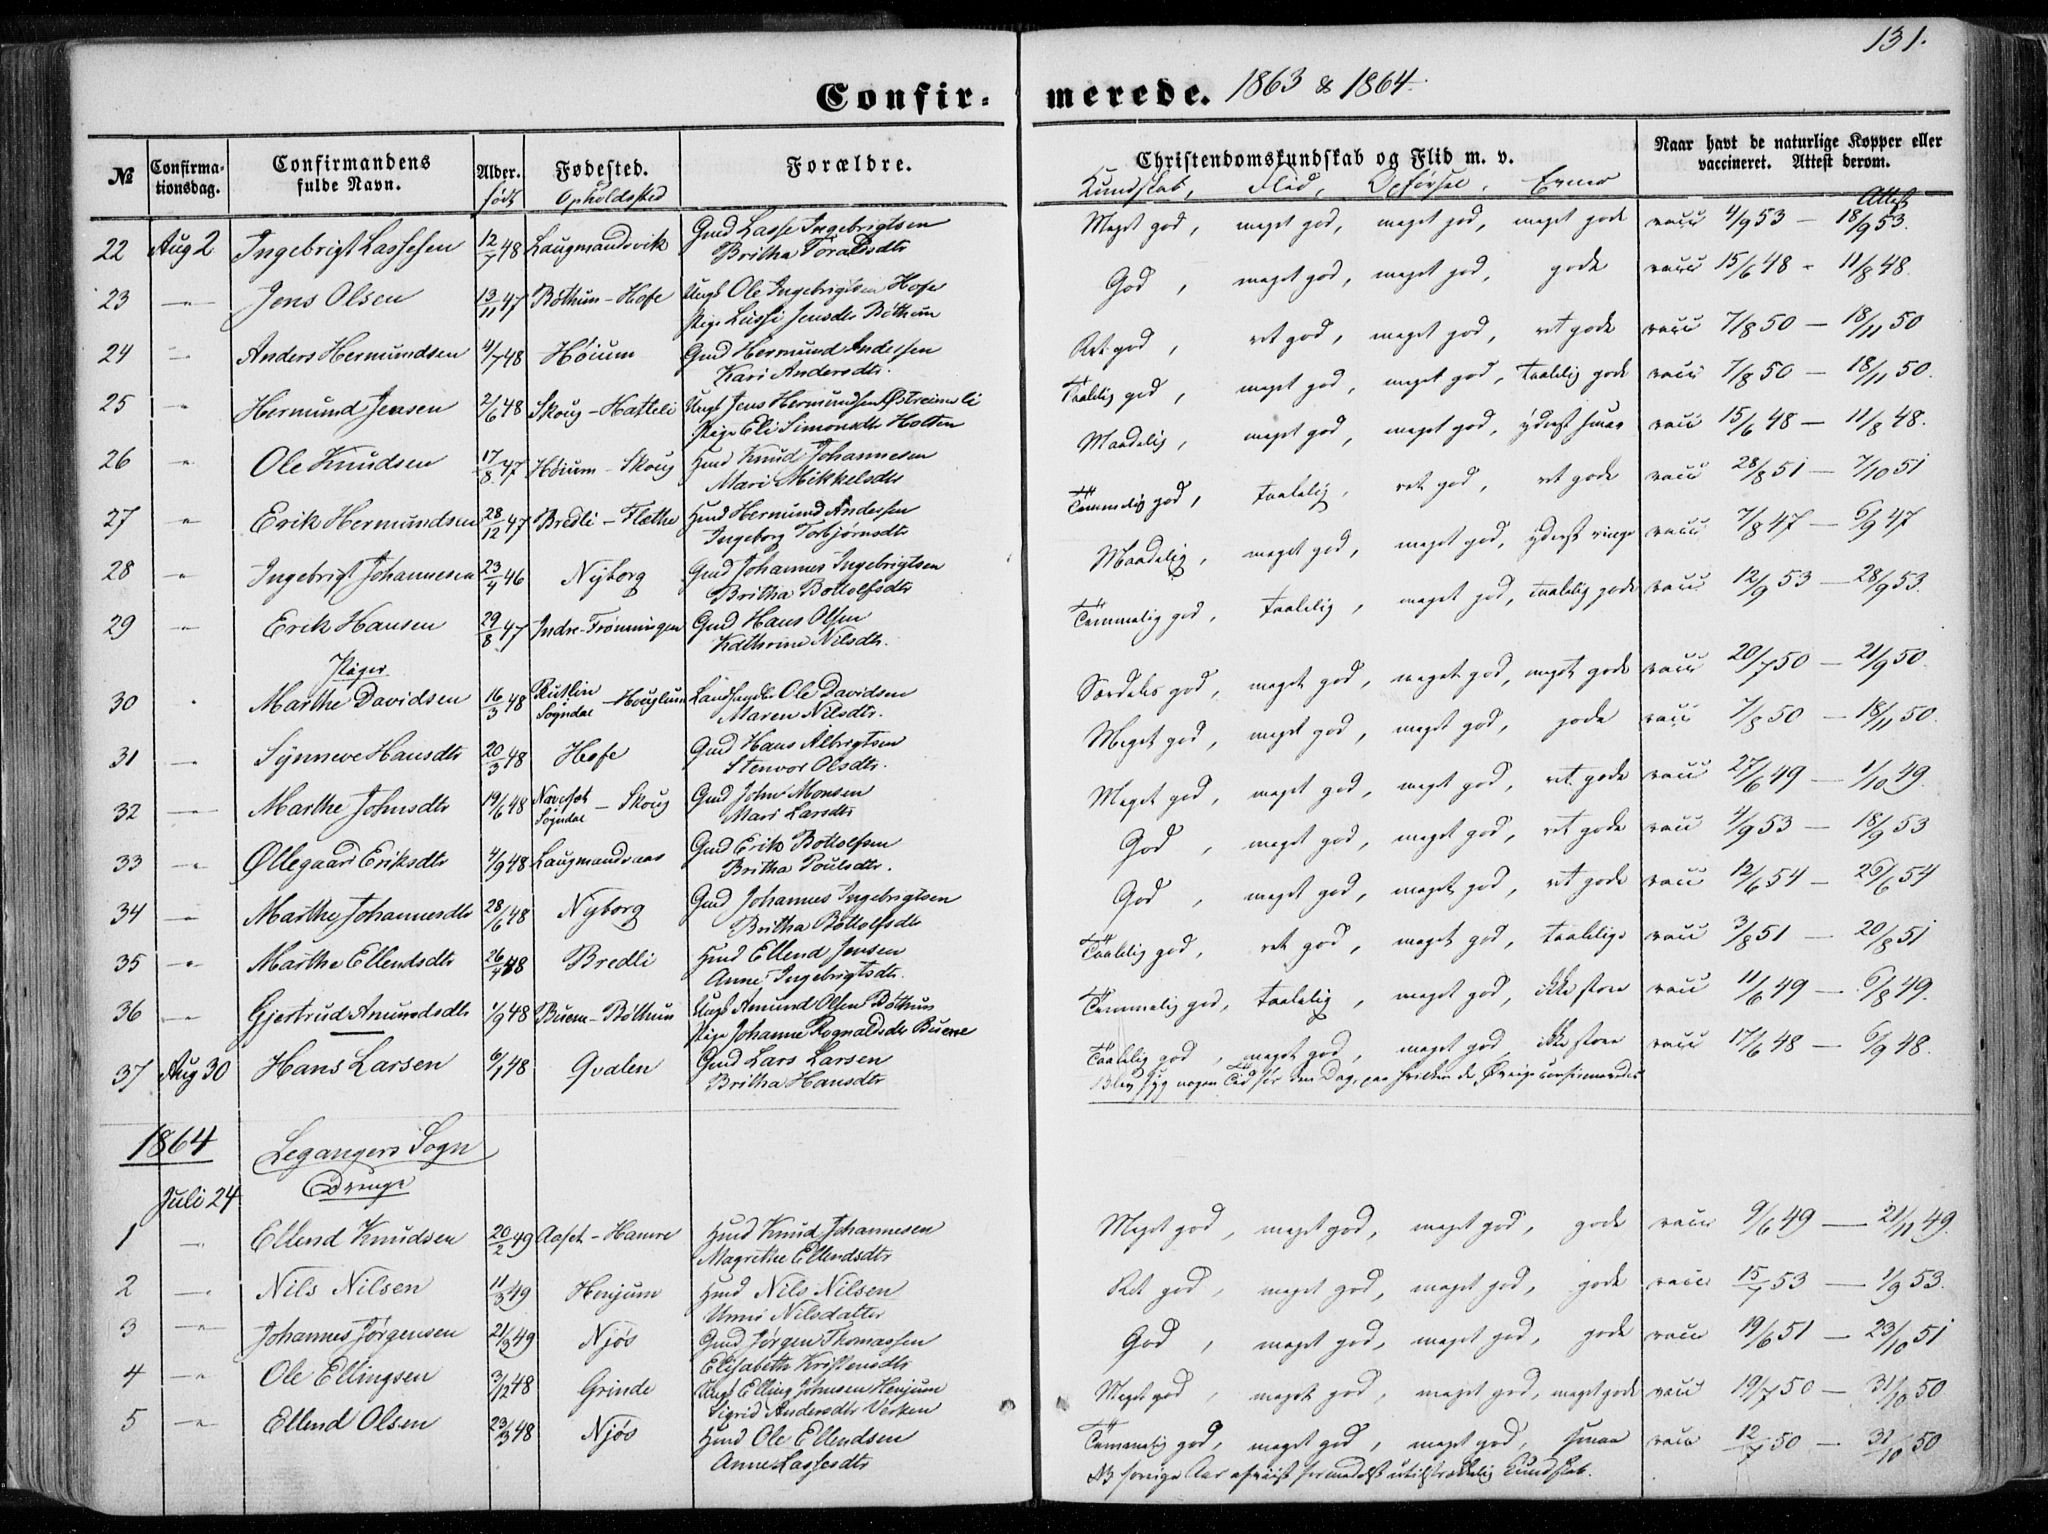 131.
Confirmerede. 1863 & 1864.
№ Confirmationsdag. Confirmandens fulde Navn. Alder. født Fødested. Opholdssted Forældre. Christendomskundskab og Flid m. v. Kundskab, Flid, Opførsel, Evner Naar havt de naturlige Kopper eller vaccineret. Attest derom. Attest
22 Aug 2 Ingebrigt Lassesen 12/7 48 Laugmandsvik Gmd Lasse Ingebrigtsen Meget god, meget god, meget god, meget gode vacc 4/9 53 — 18/9 53.
Britha
23 —" Jens Olsen 13/11 47 Bøthun - Hofe Ungk Ole Ingebrigtsen Hofe God, meget god, meget god, gode vacc 15/6 48 - 11/8 48.
Pige Lussi Jensdtr Bøthun
24 " Anders Hermundsen 4/7 48 Høium Gmd Hermund Andersen Ret god, ret god, meget god, ret gode vacc 7/8 50 — 18/11 50
Kari Andersdtr.
25 " Hermund Jensen 2/6 48 Skoug - Hatleli Ungk Jens Hermundsen Taalelig god, meget god, meget god, taalelig gode vacc 7/8 50 — 18/11 50.
Pige Eli Simonsdtr Holsen
26 " Ole Knudsen 17/8 47 Høium - Skoug Hmd Knud Johannesen Maadelig, meget god, meget god, yderst smaa vacc 15/6 48 — 11/8 48.
Mari Mikkelsdtr
27 " Erik Hermundsen 28/12 47 Bredli - Flæthe Hmd Hermund Andersen Temmelig god, taalelig, ret god, ret gode vacc 28/8 51 — 7/10 51
Ingeborg Torbjørnsdtr
28 " Ingebrigt Johannesen 23/4 46 Nyborg Gmd Johannes Ingebrigtsen Maadelig, meget god, meget god, yderst ringe vacc 7/8 47 — 6/9 47
Britha Botolfsdtr
29 " Erik Hansen 29/8 47 Indre-Frønningen Gmd Hans Olsen Temmelig god, taalelig, meget god, taalelig gode vacc 12/9 53 — 28/9 53.
Kathrine Nilsdtr.
Piger
30 " Marthe Davidsen 16/3 48 Rutlin Sogndal - Houglum Landhandler Ole Davidsen Særdeles god, meget god, meget god, meget gode vacc 20/7 50 — 21/9 50.
Maren Nilsdtr.
31 —" Synneve Hansdtr 20/3 48 Hofe Gmd Hans Albrigtsen Meget god, meget god, meget god, gode vacc 7/8 50 — 18/11 50.
Stenvor Olsdtr.
32 —" Marthe Johnsdtr 19/6 48 Navesæt Sogndal - Skoug Gmd John Monsen Meget god, meget god, meget god, ret gode vacc 27/6 49 — 1/10 49.
Mari Larsdtr
33 —" Øllegaard Eriksdtr 4/9 48 Laugmandsaas Gmd Erik Bottolfsen God, meget god, meget god, ret gode vacc 4/9 53 — 18/9 53
Britha Poulsdtr.
34 —" Marthe Johannesdtr 28/6 48 Nyborg Gmd Johannes Ingebrigtsen God, meget god, meget god, ret gode vacc 12/6 54 — 26/6 54
Britha Bottolfsdtr
35 —" Marthe Ellendsdtr 26/4 48 Bredli Hmd Ellend Jensen Taalelig god, ret god, meget god, taalelige vacc 3/8 51 — 20/8 51
Anne Ingebrigtsdtr.
36 —" Gjertrud Amundsdtr 1/9 48 Buene - Bøthun Ungk Amund Olsen Bøthun Temmelig god, taalelig, meget god, ikke store vacc 11/6 49 — 6/8 49.
Pige Johanne Rognaldsdtr Buene
37 Aug 30 Hans Larsen 6/1 48 Qvalen Gmd Lars Larsen Taalelig god, meget god, meget god, ikke store vacc 17/6 48 — 6/9 48.
Britha Hansdtr Blev syg nogen Tid før den Dag, paa hvilken de Øvrige confirmeredes
1864 Legangers Sogn
Juli 24 Drenge
1 —" Ellend Knudsen 20/2 49 Aaset - Hamre Hmd Knud Johannesen Meget god, meget god, meget god, gode vacc 9/6 49 — 21/11 49.
Magrethe Ellendsdtr
2 —" Nils Nilsen 11/3 49 Henjum Hmd Nils Nilsen Ret god, meget god, meget god, gode vacc 15/7 53 — 1/9 53.
Unni Nilsdatter
3 —" Johannes Jørgensen 21/3 49 Njøs Gmd Jørgen Thomassen God, meget god, meget god, gode vacc 19/6 51 — 23/10 51
Elisabeth Kristensdtr
4 —" Ole Ellingsen 3/12 48 Grinde Ungk Elling Johnsen Henjum Meget god, meget god, meget god, meget gode vacc 19/7 50 — 31/10 50
Sigrid Andersdtr
5 —" Ellend Olsen 23/3 48 Njøs Hmd Ole Ellendsen Temmelig god, meget god, meget god, smaa vacc 12/7 50 — 31/10 50
Anne Lassesdtr NB forrige Aar afviist formedelst utilstrækkelig Kundskab.